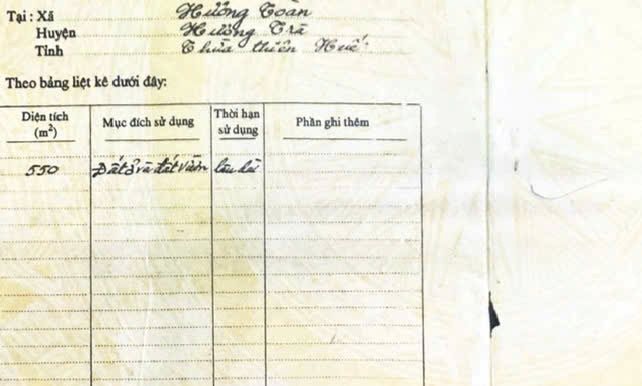 Tại : Xã Hương Toàn
Huyện Hương Trà
Tỉnh Thừa thiên Huế
Theo bảng liệt kê dưới đây:
Diện tích (m²) Mục đích sử dụng Thời hạn sử dụng Phần ghi thêm
550 Đất ở và đất vườn lâu dài